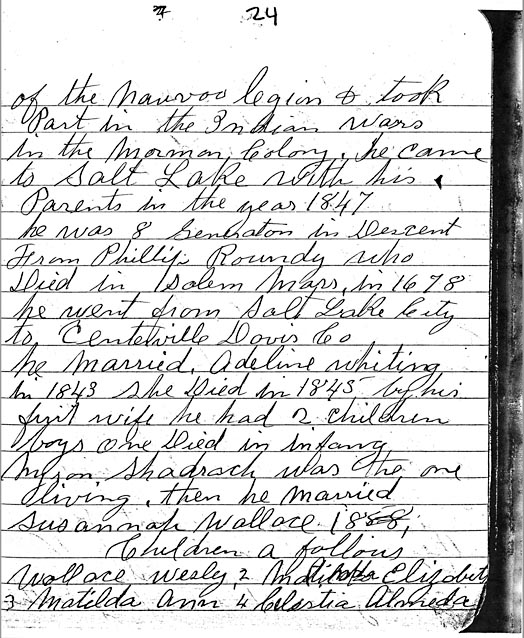 24
of the nauvoo legion & took
Part in the Indian wars
in the Mormon Colony. he came
to Salt Lake with his
Parents in the year 1847
he was 8 Generaton in Descent
From Phillip Roundy who
Died in Salem Mars, in 1678
he went from Salt Lake City
to Centerville Davis Co
he married, Adeline whiting
in 1843 she Died in 1845 by his
first wife he had 2 children
boys one Died in infany
Myron Shadrack was the one
living. then he married
Susannah Wallace 18
Children a follous
Wallace wesly, 2 Elizabeth
3 Matilda Ann 4 Celestia Almeda